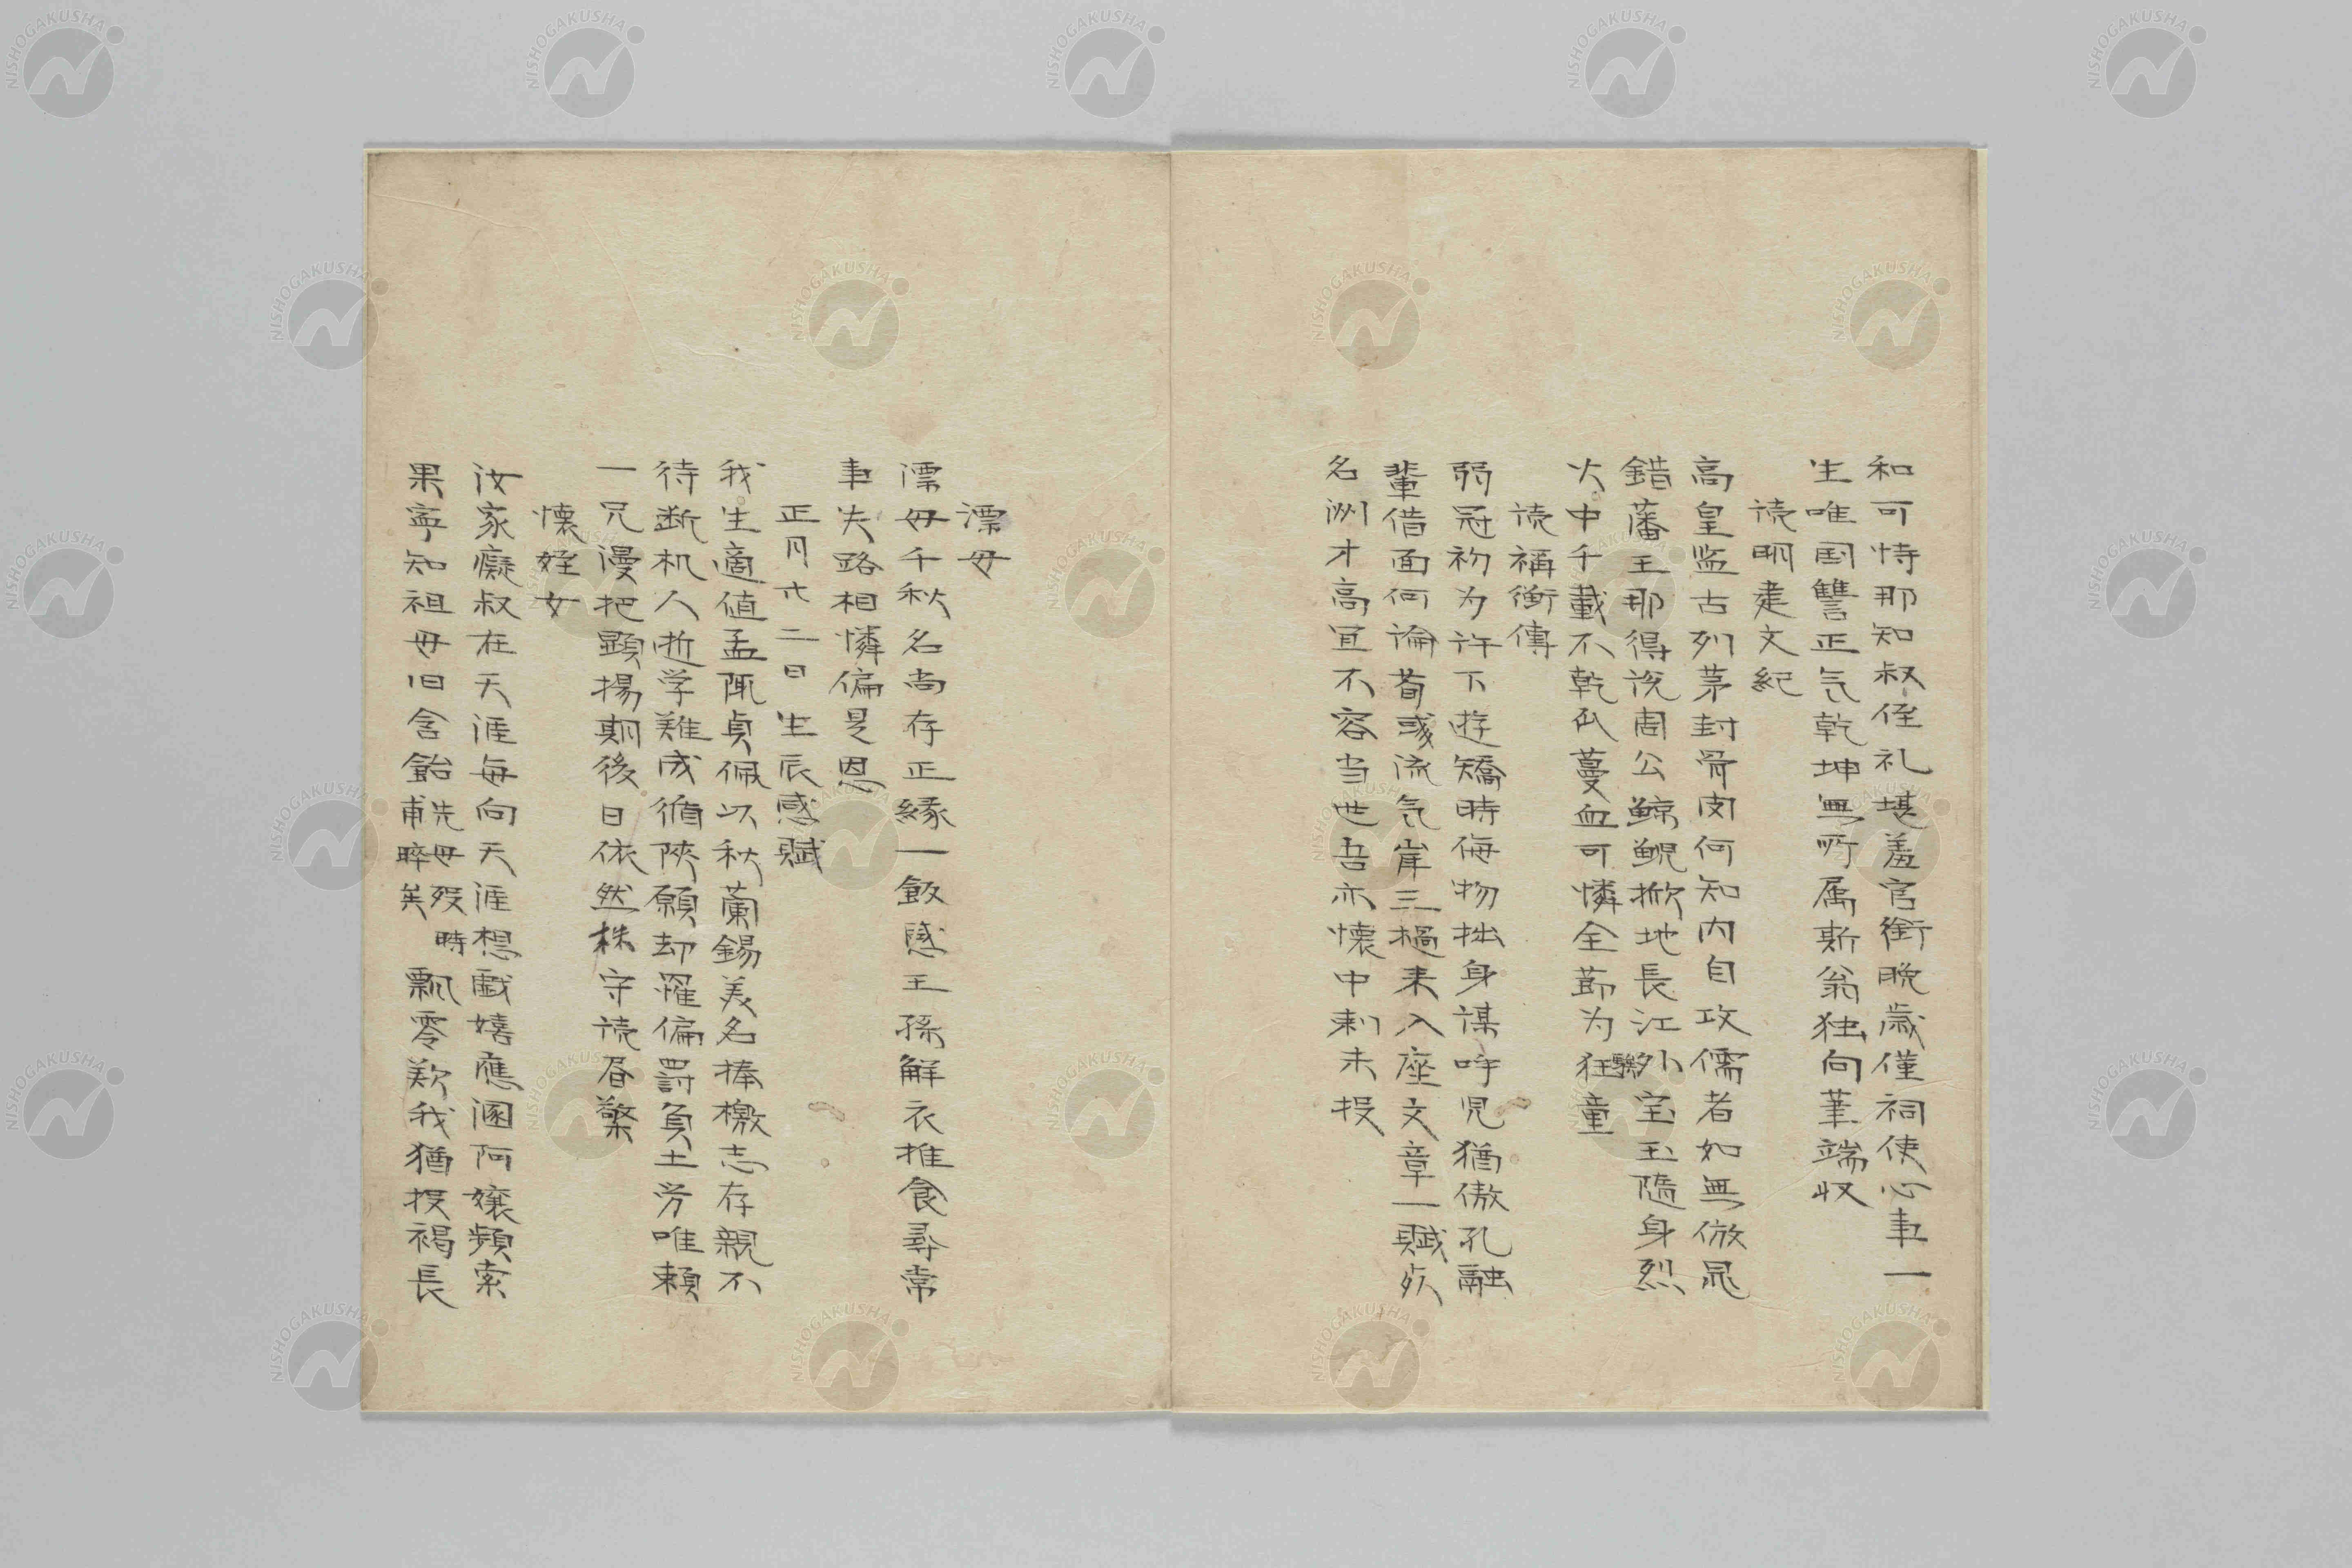 和可恃那知叔侄礼堪羞官銜晩歳僅祠使心事一
生唯国讐正气乾坤無所属斯翁独向筆端収
読明建文紀
高皇監古列茅封骨肉何知内自攻儒者如無倣晁
錯藩王那得説周公鯨鯢掀地長江外宝玉隨身烈
火中千載不乾瓜蔓血可憐全節为狂童
読禰衡傳
弱冠初为許下遊矯時侮物拙身謀呼児猶傲孔融
輩借面何論荀彧流气岸三檛来入座文章一賦
名洲才高宜不容当世吾亦懐中刺未投
漂母
漂母千秋名尚存正縁一飯感王孫解衣推食尋常
事失路相憐偏是恩
正月六二日生辰感賦
我生適値孟陬貞佩以秋蘭錫美名捧檄志存親不
待断机人逝学難成循陔願却罹偏罰負土労唯頼
一兄漫把顕揚期後日依然株守読昏檠
懐姪女
汝家癡叔在天涯毎向天涯想戯嬉應溷阿嬢頻索
果寧知祖母旧含飴先母歿時甫晬矣飄零歎我猶投褐長